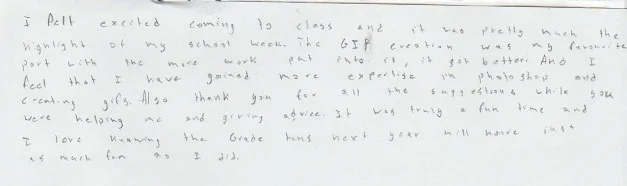 I felt excited coming to class and it was pretty much the
highlight of my school week. The GIF creation was my favourite
part with the more work put into it, it got better. And I
feel that I have gained more expertise in photo shop and
creating gifs. Also thank you for all the suggestions while you
were helping me and giving advice. It was truly a fun time and
I love knowing the Grade tens next year will have just
as much fun as I did.